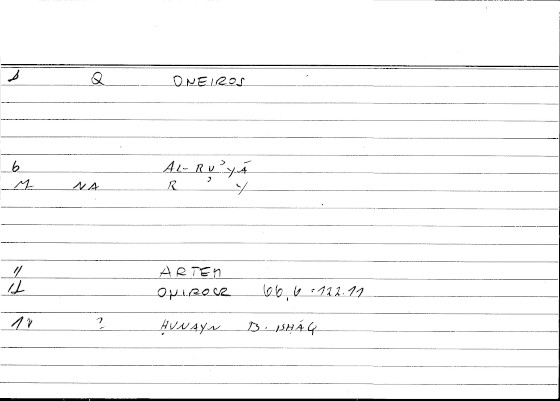 Q ONEIROS
6 AL-RUʾYĀ
M NA R ʾ Y
11 ARTEM
ONIROCR 66,6 = 122.11
? ḤUNAYN B. ISḤĀQ